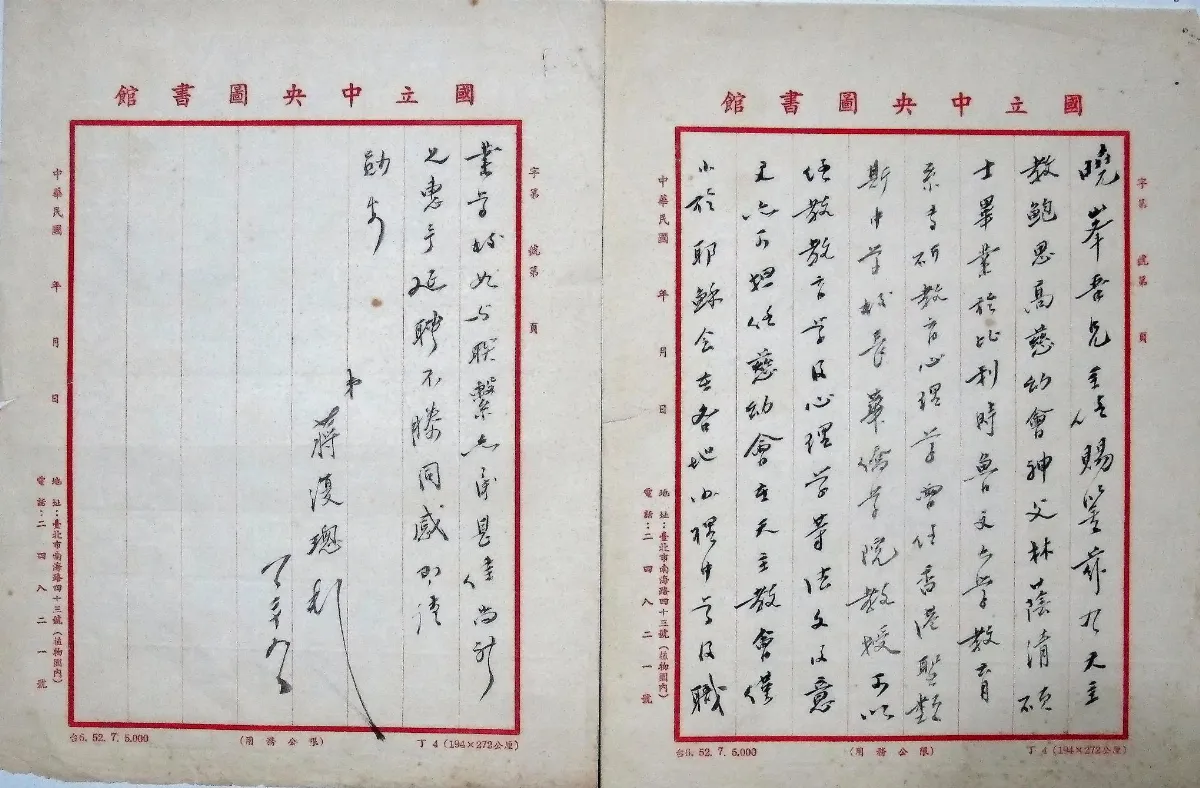 國立中央圖書館
字第 號第 頁
曉峯吾兄主任賜鑒茲有天主
教鮑思高慈幼會神父林蔭清碩
士畢業於比利時魯文大學教育
系專研教育心理學曾任香港聖類
斯中學校長華僑學院教授可以
任教教育學及心理學等法文及意
文亦可担任慈幼會在天主教會僅
小於耶穌会在各地办理中学及職
中華民國 年 月 日
地址：臺北市南海路四十三號（植物園內）
電話：二四八二一號
台5. 52. 7. 5.000
（限公務用）
丁4（194×272公厘）
國立中央圖書館
字第 號第 頁
業学校如与联繫亦承見佳尚祈
惠予延聘不勝同感耑請
勛安
弟
蔣復璁
中華民國 年 月 日
地址：臺北市南海路四十三號（植物園內）
電話：二四八二一號
台5. 52. 7. 5.000
（限公務用）
丁4（194×272公厘）